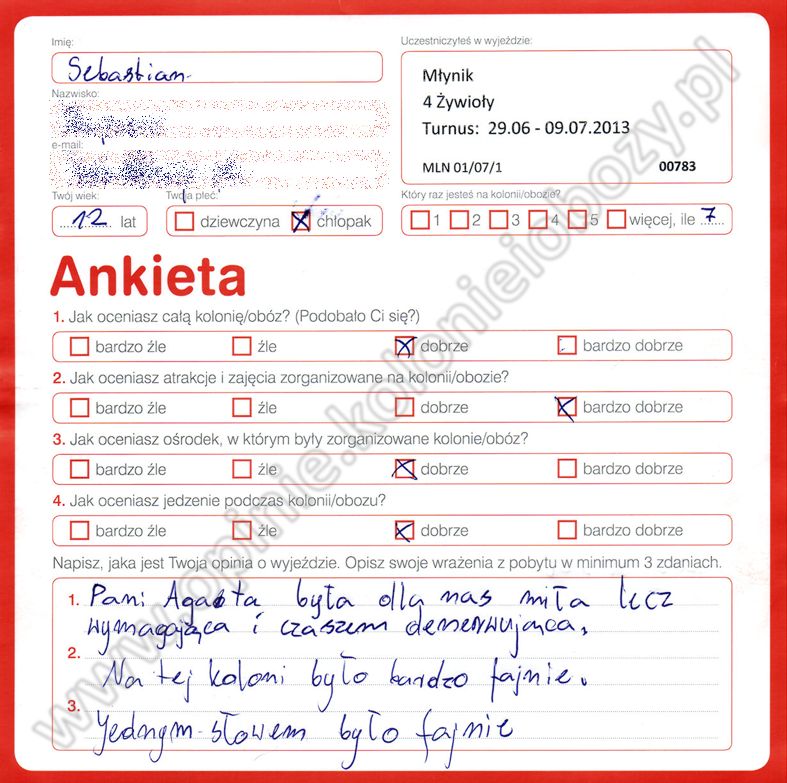 Imię:
Sebastian
Nazwisko:
e-mail:
Twój wiek:
12 lat
Twoja płeć:
dziewczyna chłopak
Uczestniczyłeś w wyjeździe:
Młynik
4 Żywioły
Turnus: 29.06 - 09.07.2013
MLN 01/07/1 00783
Który raz jesteś na kolonii/obozie?
1 2 3 4 5 więcej, ile 7
Ankieta
1. Jak oceniasz całą kolonię/obóz? (Podobało Ci się?)
bardzo źle źle dobrze bardzo dobrze
2. Jak oceniasz atrakcje i zajęcia zorganizowane na kolonii/obozie?
bardzo źle źle dobrze bardzo dobrze
3. Jak oceniasz ośrodek, w którym były zorganizowane kolonie/obóz?
bardzo źle źle dobrze bardzo dobrze
4. Jak oceniasz jedzenie podczas kolonii/obozu?
bardzo źle źle dobrze bardzo dobrze
Napisz, jaka jest Twoja opinia o wyjeździe. Opisz swoje wrażenia z pobytu w minimum 3 zdaniach.
1. Pani Agata była dla nas miła lecz
wymagająca i czasem denerwująca.
2. Na tej koloni było bardzo fajnie.
3. Jednym słowem było fajnie
www.opinie.kolonieiobozy.pl